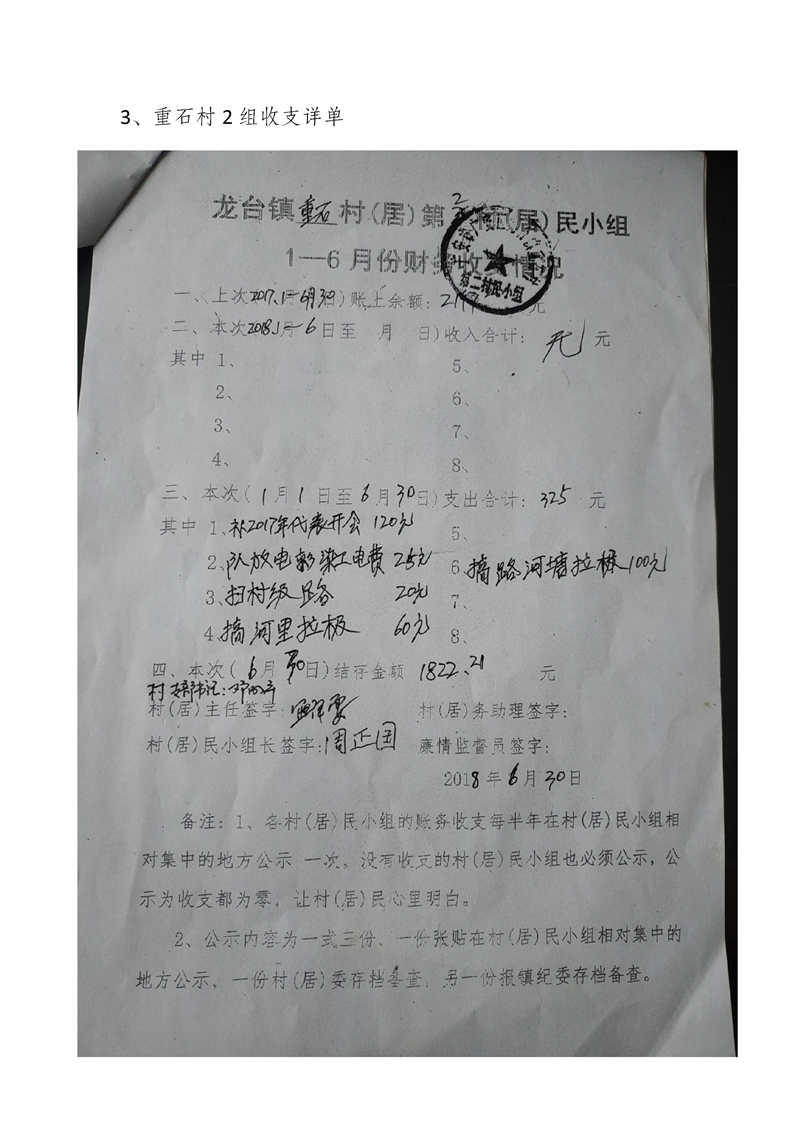 3、重石村 2 组收支详单
龙台镇重石村(居)第2村(居)民小组
1—6月份财务收支情况
第二村民小组
一、上次2017.1—6月30日)账上余额: 元
二、本次2018.1月—6日至 月 日)收入合计: 无 元
其中 1、 5、
2、 6、
3、 7、
4、 8、
三、本次(1月1日至6月30日)支出合计: 325 元
其中 1、补2017年代表开会 120元 5、
2、队放电影 电费 25元 6、搞路河塘拉极 100元
3、扫村级路 20元 7、
4、搞河里拉极 60元 8、
四、本次(6月30日)结存金额 1822.21 元
村支部书记:
村(居)主任签字: 村(居)务助理签字:
村(居)民小组长签字:周正国 廉情监督员签字:
2018年6月30日
备注:1、各村(居)民小组的账务收支每半年在村(居)民小组相
对集中的地方公示 一次，没有收支的村(居)民小组也必须公示，公
示为收支都为零，让村(居)民心里明白。
2、公示内容为一式三份、一份张贴在村(居)民小组相对集中的
地方公示，一份村(居)委存档备查，另一份报镇纪委存档备查。